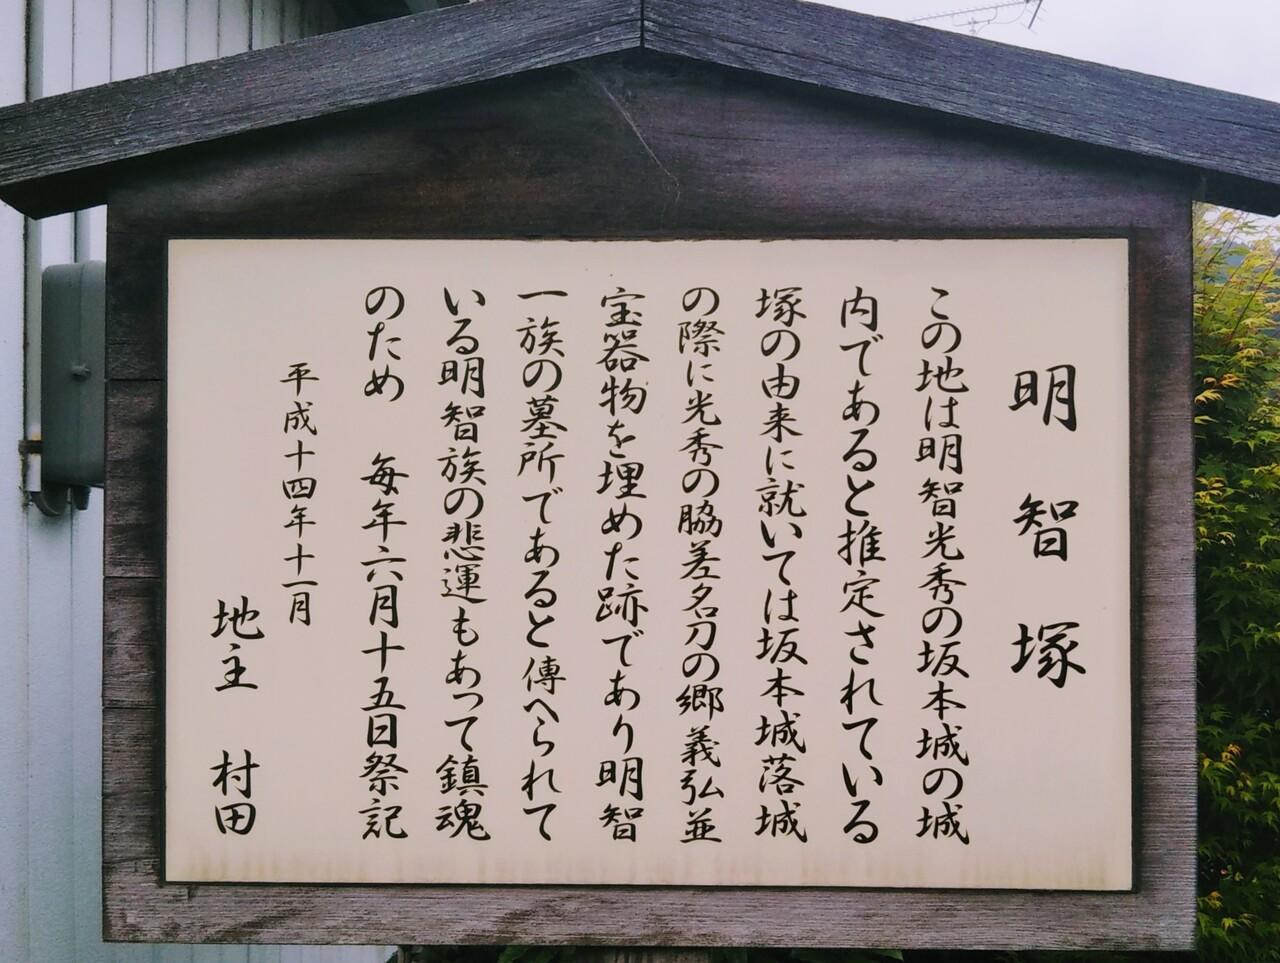 明智塚
この地は明智光秀の坂本城の城
内であると推定されている
塚の由来に就いては坂本城落城
の際に光秀の脇差名刀の郷義弘並
宝器物を埋めた跡であり明智
一族の墓所であると傳へられて
いる明智族の悲運もあって鎮魂
のため　毎年六月十五日祭記
平成十四年十一月
地主　村田